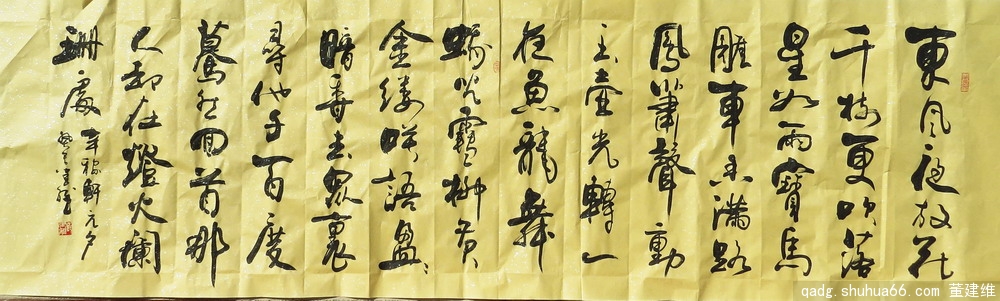 東風夜放花
千樹更吹落
星如雨寶馬
雕車香滿路
鳳簫聲動
玉壺光轉一
夜魚龍舞
蛾兒雪柳黄
金縷咲語盈〻
暗香去眾裏
尋他千百度
驀然回首那
人却在燈火欄
珊處
辛稼軒元夕
qadg.shuhua66.com 董建维